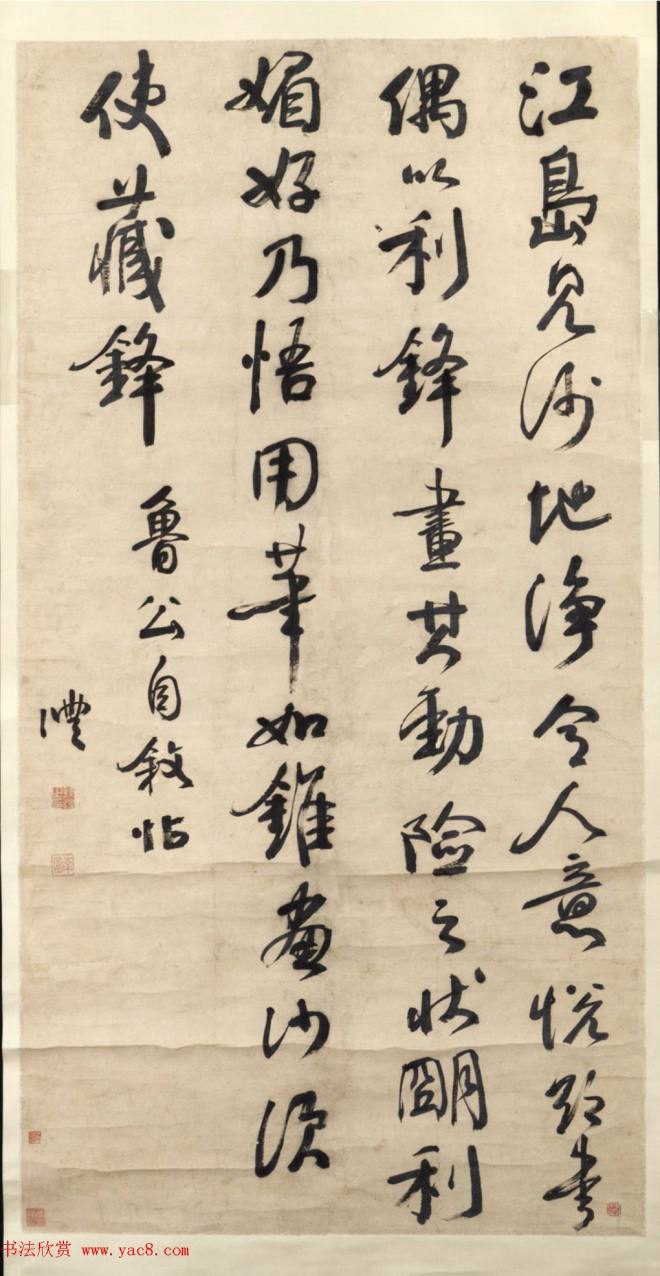 江島見沙地淨令人意悅欲書
偶以利鋒畫其勁險之狀朙利
媚好乃悟用筆如錐畫沙須
使藏鋒
魯公自敘帖
灃
书法欣赏 www.yac8.com